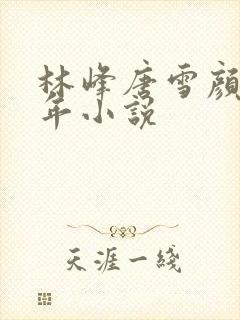 林峰唐雪顔
年小説
天涯一綫